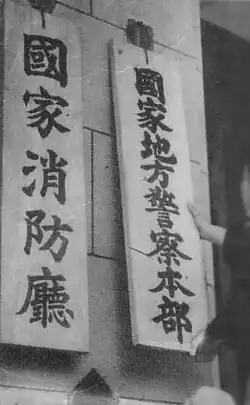 國家地方警察本部
國家消防廳